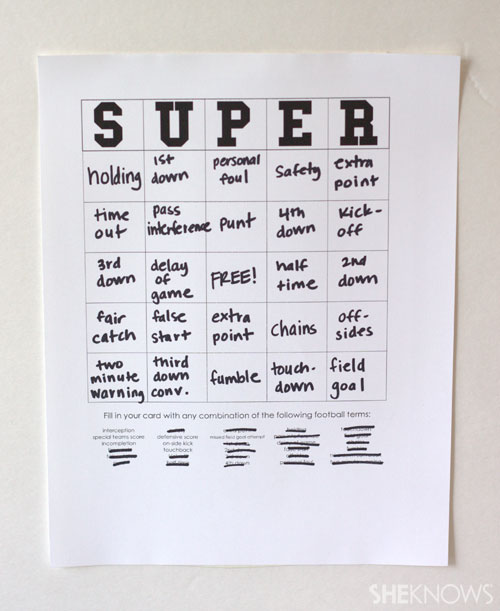 SUPER
holding
1st
down
personal
foul
Safety
extra
point
time
out
pass
interference
Punt
4th
down
Kick-
off
3rd
down
delay
of
game
FREE!
half
time
2nd
down
fair
catch
false
start
extra
point
Chains
off-
sides
two
minute
warning
third
down
conv.
fumble
touch-
down
field
goal
Fill in your card with any combination of the following football terms:
interception
special teams score
incompletion
defensive score
on-side kick
touchback
missed field goal attempt
SHEKNOWS